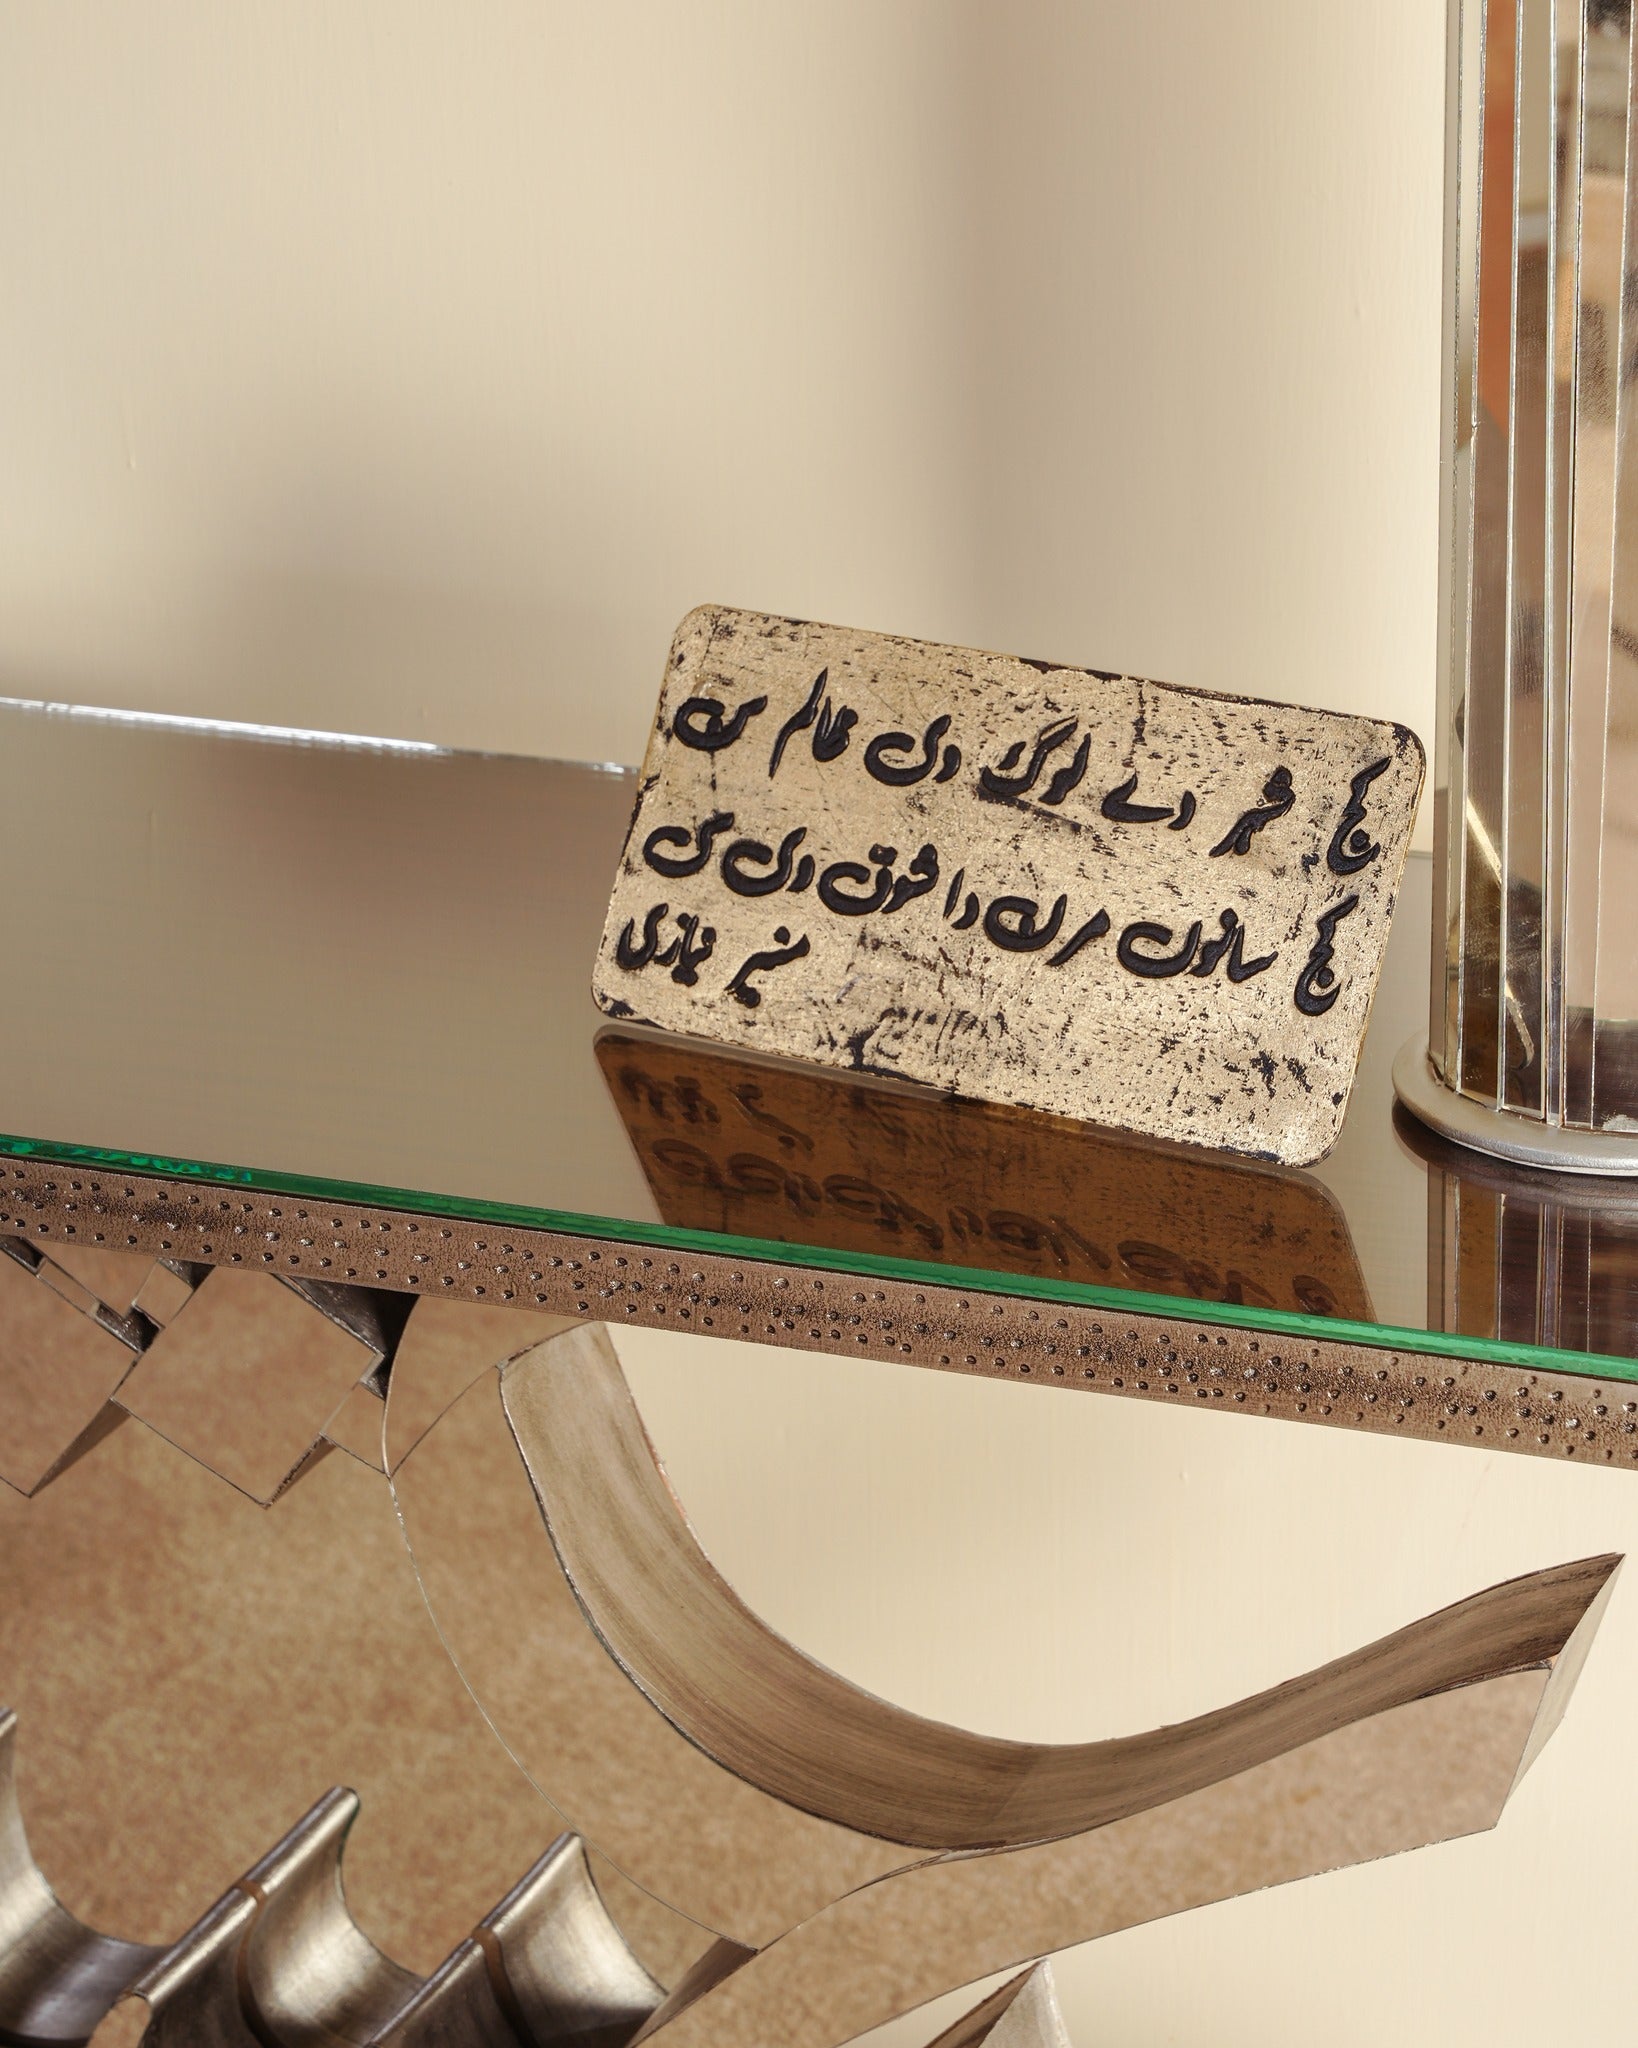 کج شہر دے لوگ وی ظالم سن
کج سانوں مرن دا شوق وی سی
منیر نیازی